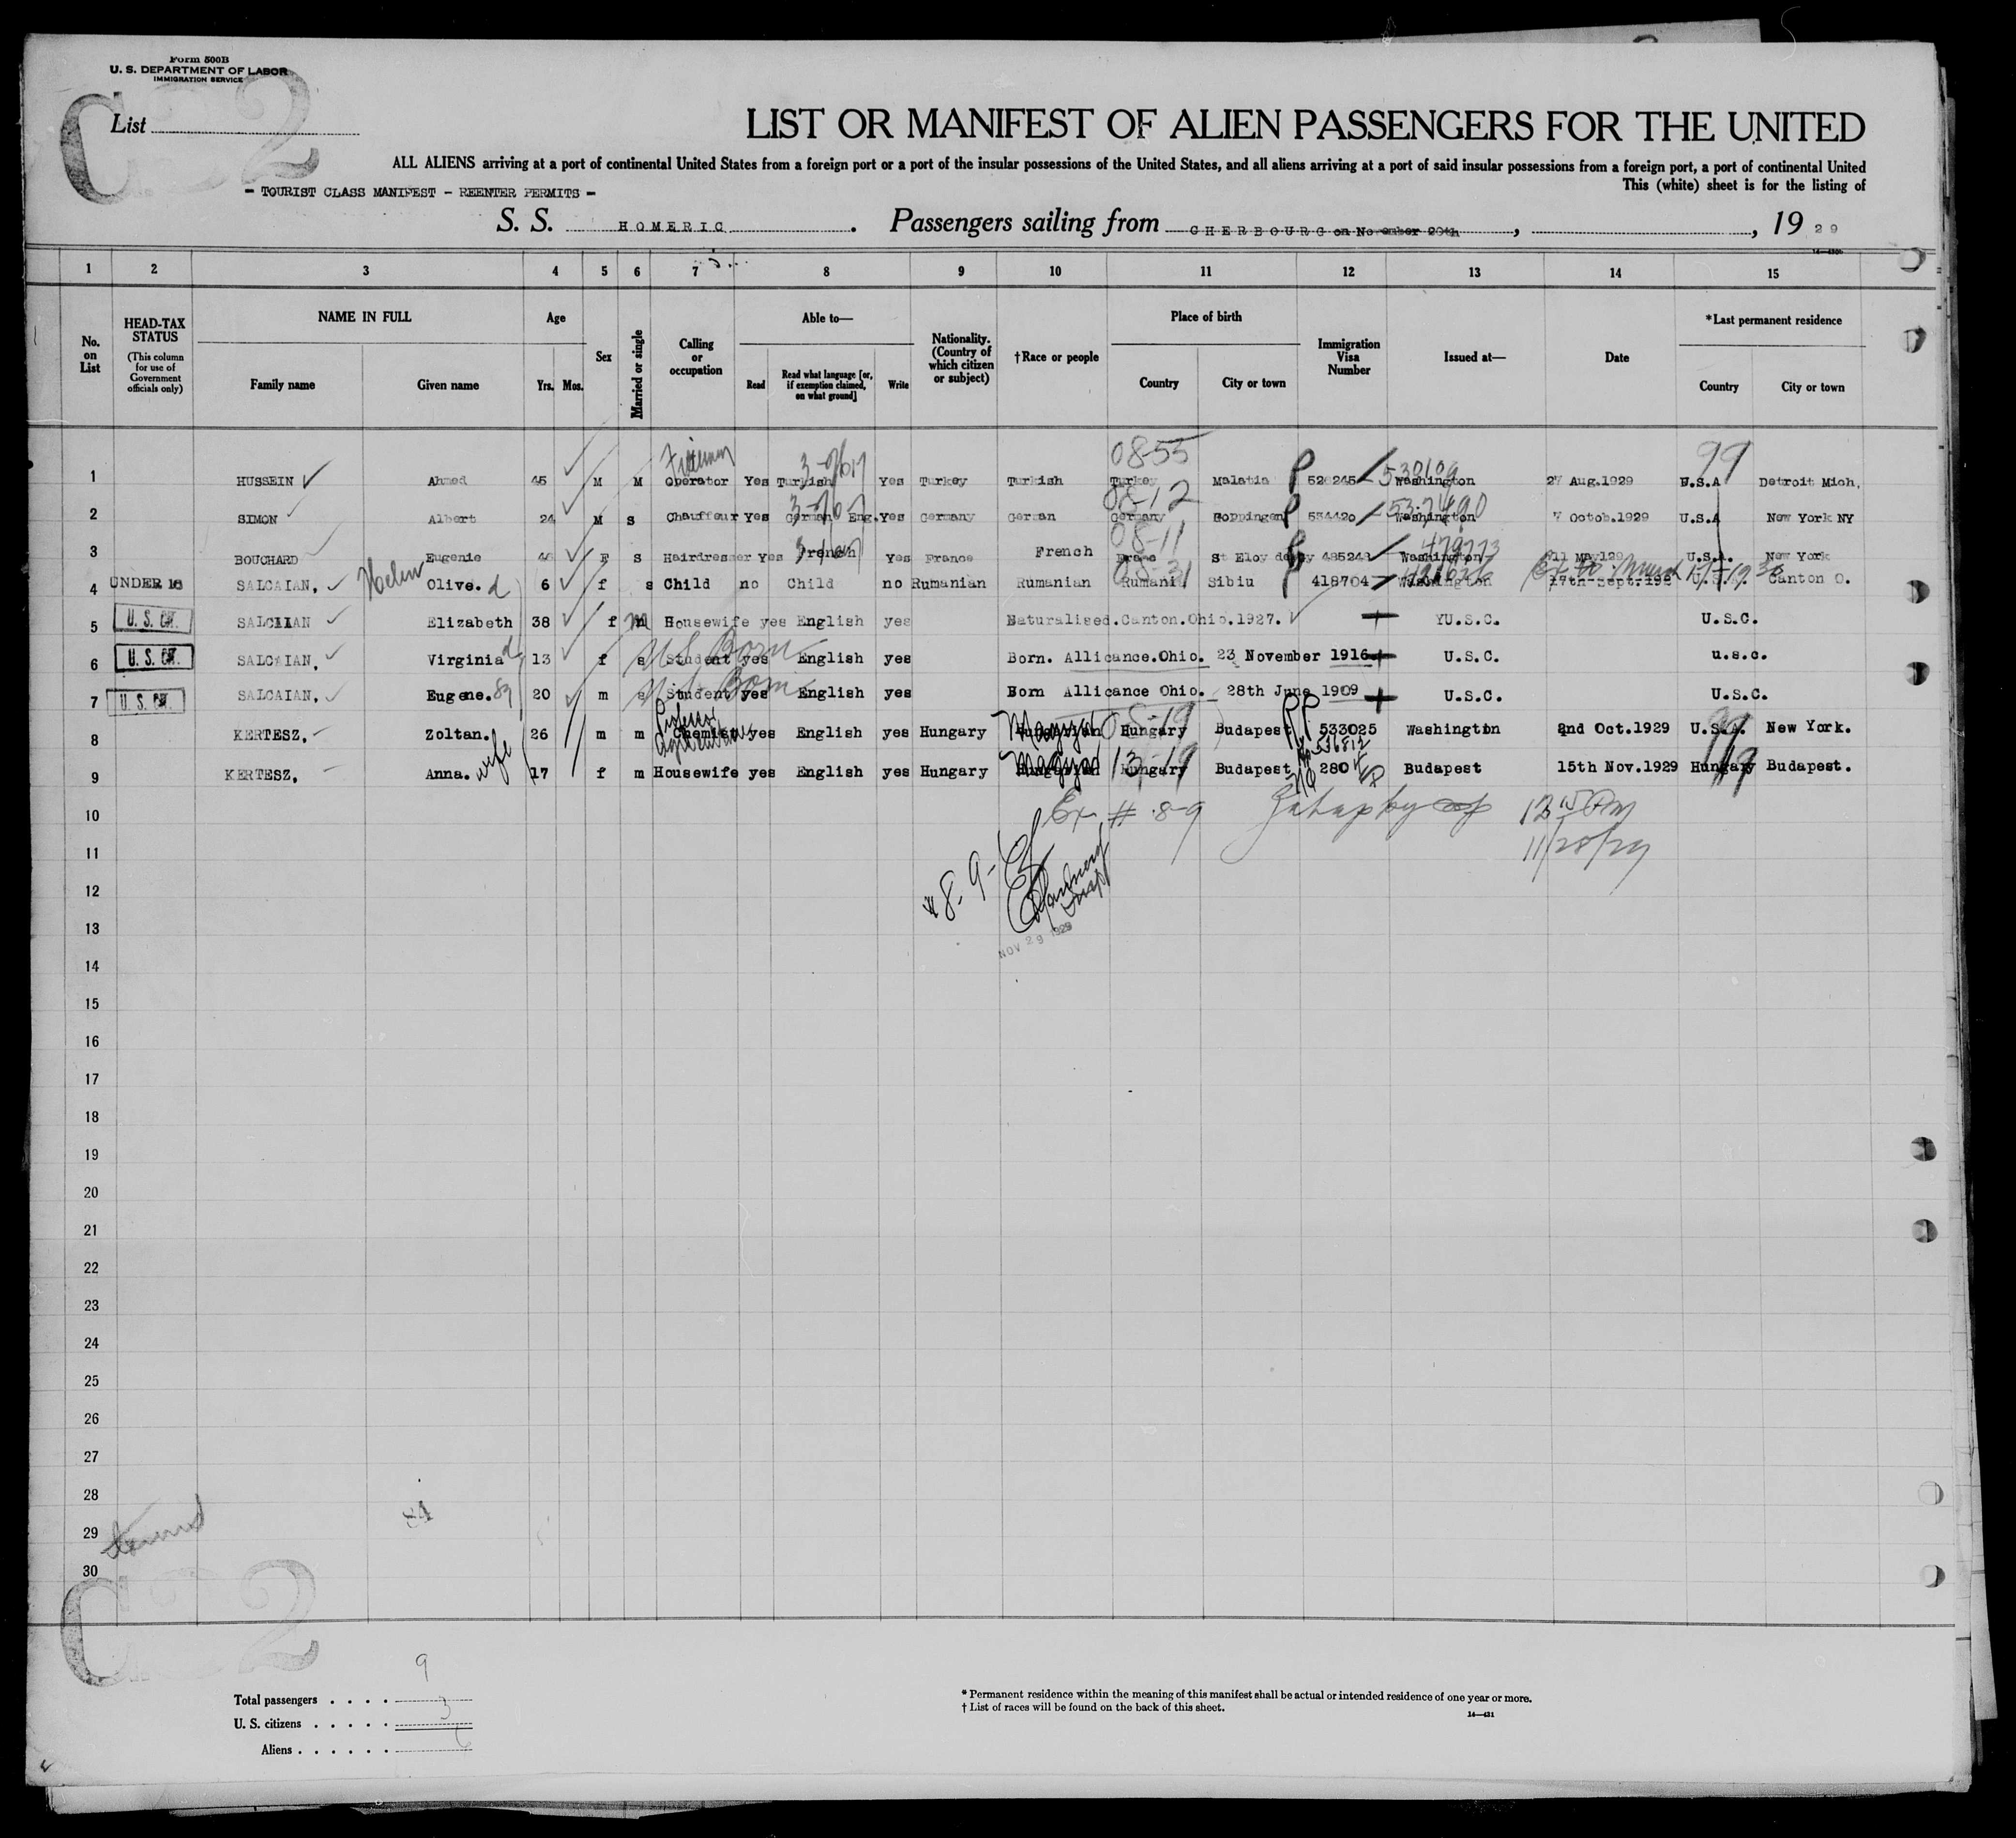 Form 500B
U. S. DEPARTMENT OF LABOR
IMMIGRATION SERVICE
List
LIST OR MANIFEST OF ALIEN PASSENGERS FOR THE UNITED
ALL ALIENS arriving at a port of continental United States from a foreign port or a port of the insular possessions of the United States, and all aliens arriving at a port of said insular possessions from a foreign port, a port of continental United
- TOURIST CLASS MANIFEST - REENTER PERMITS -
This (white) sheet is for the listing of
S. S. HOMERIC. Passengers sailing from CHERBOURG on November 20th, , 19 29
1 2 3 4 5 6 7 8 9 10 11 12 13 14 15
No. on List
HEAD-TAX STATUS (This column for use of Government officials only)
NAME IN FULL Family name Given name
Age Yrs. Mos.
Sex
Married or single
Calling or occupation
Able to— Read Read what language [or, if exemption claimed, on what ground] Write
Nationality. (Country of which citizen or subject)
†Race or people
Place of birth Country City or town
Immigration Visa Number
Issued at—
Date
*Last permanent residence Country City or town
08-55 99
1 HUSSEIN Ahmed 45 M M Operator Yes Turkish Yes Turkey Turkish Turkey Malatia 520245 530109 Washington 27 Aug.1929 U.S.A Detroit Mich,
08-12
2 SIMON Albert 24 M S Chauffeur Yes German Eng. Yes Germany German Germany Goppingen 534420 Washington 7 Octob.1929 U.S.A New York NY
08-11
3 BOUCHARD Eugenie 46 F S Hairdresser Yes French Yes France French St Eloy 485248 Washington 11 May129 U.S.A. New York
4 UNDER 16 SALCAIAN, Helen Olive. d 6 f s Child no Child no Rumanian Rumanian Rumani Sibiu 418704 Washington 17th-Sept.192 U.S. Canton O.
5 U. S. SALCIIAN Elizabeth 38 f m Housewife yes English yes Naturalised.Canton.Ohio.1927. YU.S.C. U.S.C.
6 U. S. SALCAIAN, Virginia d 13 f s Student yes English yes Born. Allicance.Ohio. 23 November 1916 U.S.C. u.s.c.
U.S. Born
7 U. S. SALCAIAN, Eugene. 20 m s Student yes English yes Born Allicance Ohio. 28th June 1909 U.S.C. U.S.C.
U.S. Born
8 KERTESZ, Zoltan. 26 m m Professor Chemist yes English yes Hungary Magyar Hungary 08-19 Budapest 533025 Washington 2nd Oct.1929 U.S.A. New York.
9 KERTESZ, Anna. wife 17 f m Housewife yes English yes Hungary Magyar Hungary 13-19 Budapest 280 Budapest 15th Nov.1929 Hungary Budapest.
10 Ex # 8-9
11 11/28/29
12
13
NOV 29 1929
14
15
16
17
18
19
20
21
22
23
24
25
26
27
28
29
30
9
Total passengers . . . .
U. S. citizens . . . . . 3
Aliens . . . . . . 6
* Permanent residence within the meaning of this manifest shall be actual or intended residence of one year or more.
† List of races will be found on the back of this sheet.
14—431